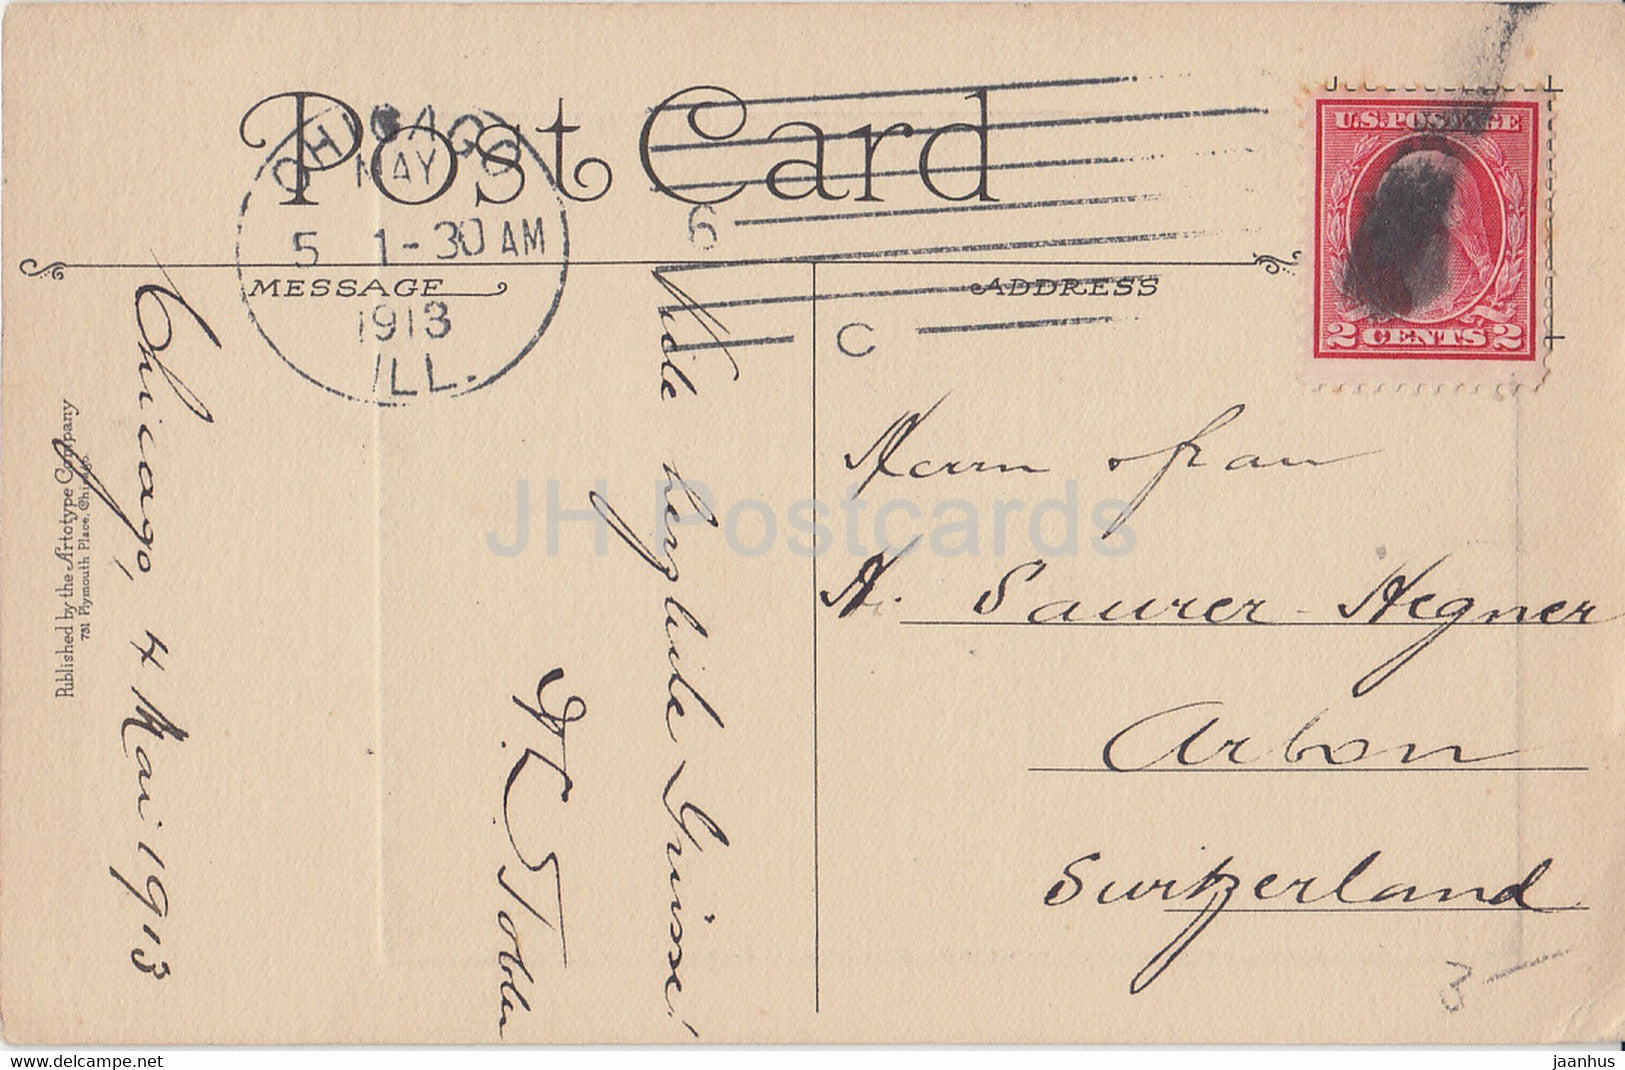 Post Card
CHICAGO
MAY
5 1-30 AM
1913
ILL.
6
C
U.S. POSTAGE
2 CENTS 2
MESSAGE
ADDRESS
Chicago, 4 Mai 1913
Viele herzliche Grüsse!
Tobler
Herrn & Frau
H. Saurer-Hegner
Arbon
Switzerland
3
Published by the Artotype Company
731 Plymouth Place, Chicago.
JH Postcards
https://www.delcampe.net
jaanhus